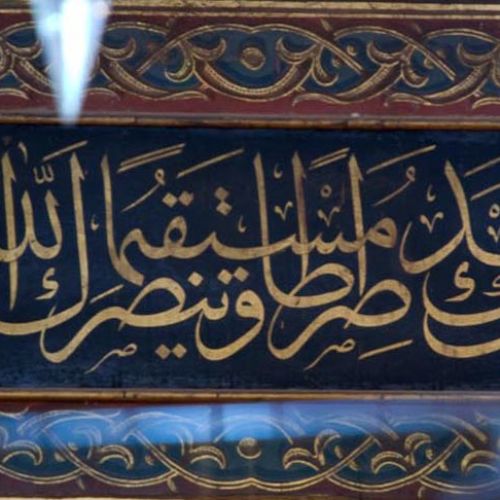 صراطا مستقيما وينصرك الله